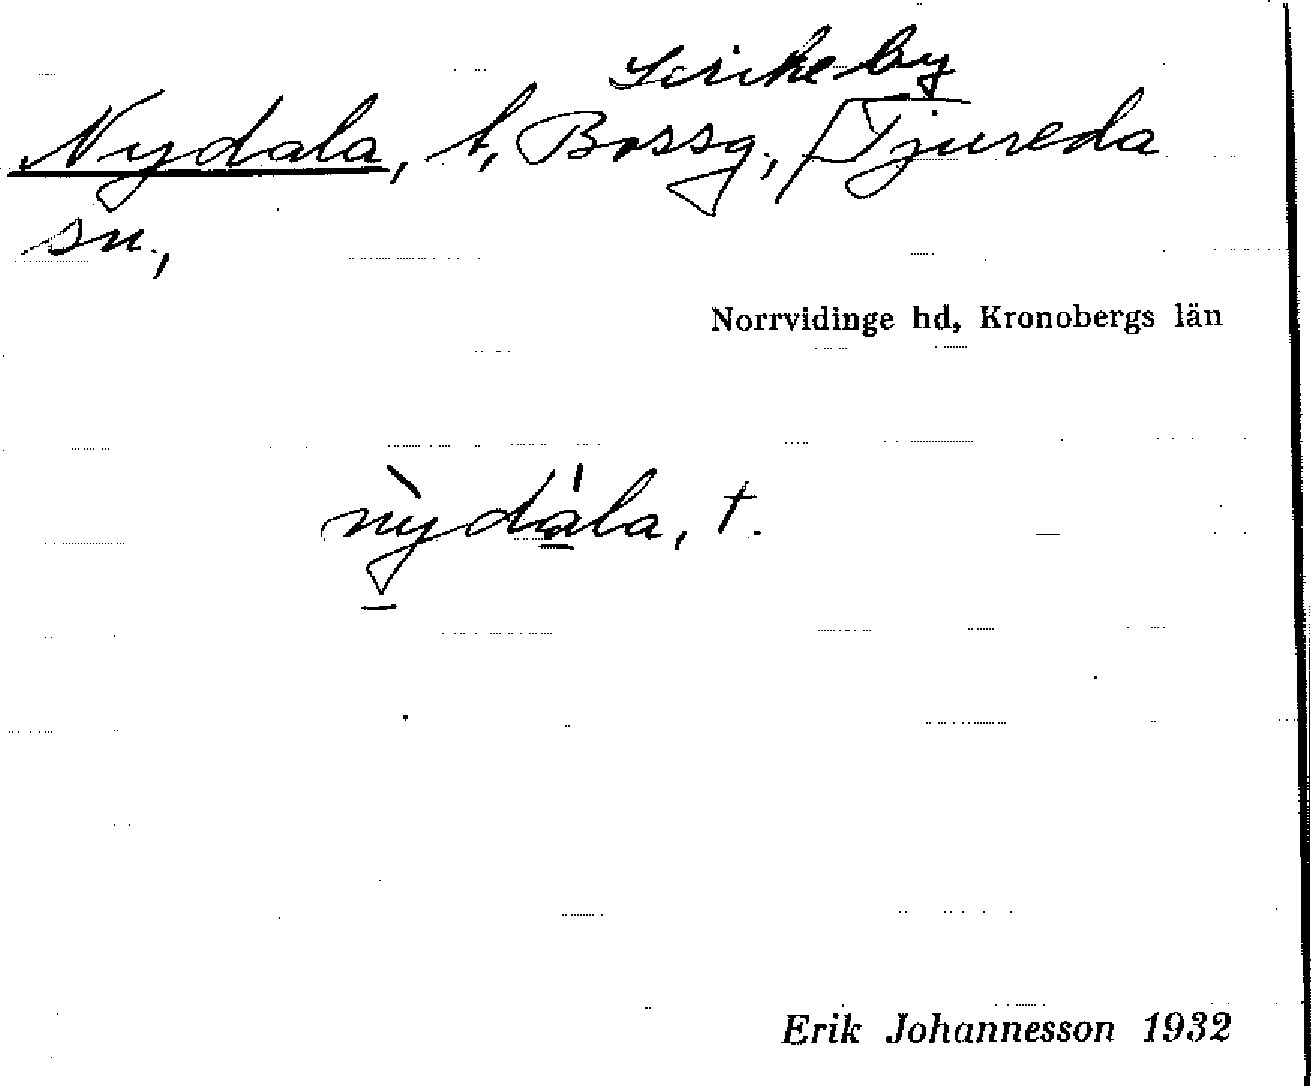 Nydala, t, Bossg., Tjureda
sn.,
Norrvidinge hd, Kronobergs län
nỳdála, t.
Erik Johannesson 1932